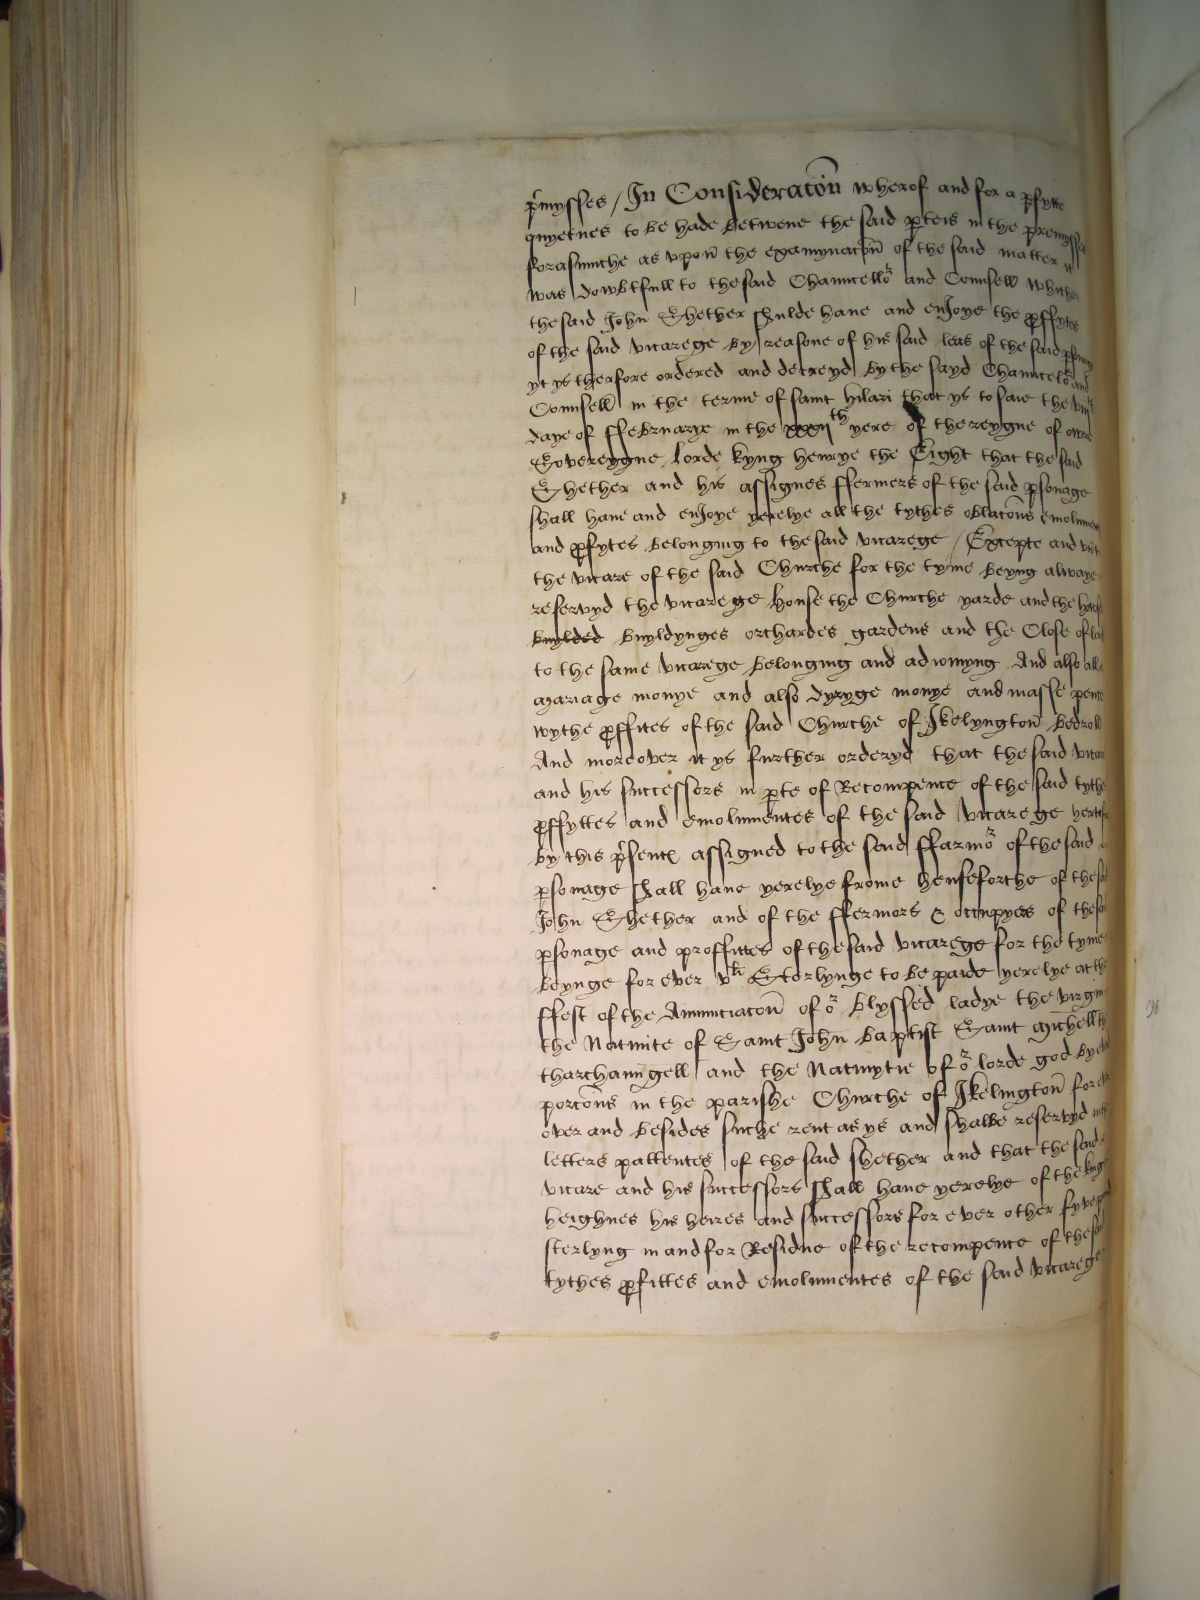 p'mysses / In Consideracōn wherof and for a pfytte
quyetnes to be hade betwene the said pteis in the premysses
forasmuche as vpon the examynacōn of the said matter it
was dowbtfull to the said Chauncello^r and Counsell whither
the said John Shether shulde haue and enJoye the pffytes
of the said vicarege by reasone of his said leas of the said psonage
yt ys therfore ordered and decreyd by the sayd Chauncelo^r and
Counsell in the terme of saint hilari that ys to saie the
daye of ffebruarye in the xxxij^th yere of the reygne of owre
Sovereygne lorde kyng henrye the Eight that the said
Shether and his assignes ffermers of the said psonage
shall haue and enJoye yerelye all the tythes oblacōns emolumen
and pfytes belonging to the said vicarege / Excepte and
the vicare of the said Churche for the tyme beyng alwaye
reservyd the vicarege house the Churche yarde and the
buylded buyldynges orchardes gardens and the Close of
to the same vicarege belonging and adioinyng And also all
mariage monye and also dyryge monye and masse pence
wythe pffites of the said Churche of Ikelyngton bedroll
And moreover it ys further orderyd that the said vicare
and his successors in pte of Recompence of the said tythe
pffyttes and emolumentes of the said vicarege
by this p'sent assigned to the said ffarmo^r of the said
psonage shall haue yerelye frome henseforthe of the said
John Shether and of the ffermors & occupyers of the said
psonage and proffittes of the said vicarege for the tyme
beynge for ever v^li Sterlynge to be paide yerelye at the
ffest of the Annunciacōn of o^r blyssed ladye the virgin
the Natiuite of Saint John baptist Saint Michell th
tharchaungell and the Natiuytie of o^r lorde god by
porcōns in the parishe Churche of Ikelington for
over and besides suche rent as ys and shalbe reservyd
letters pattentes of the said shether and that the said
vicare and his successors shall haue yerelye of the kings
heighnes his heires and successors for ever other fyve
sterlyng in and for Residue of the recompence of the said
tythes pfittes and emolumentes of the said vicarege